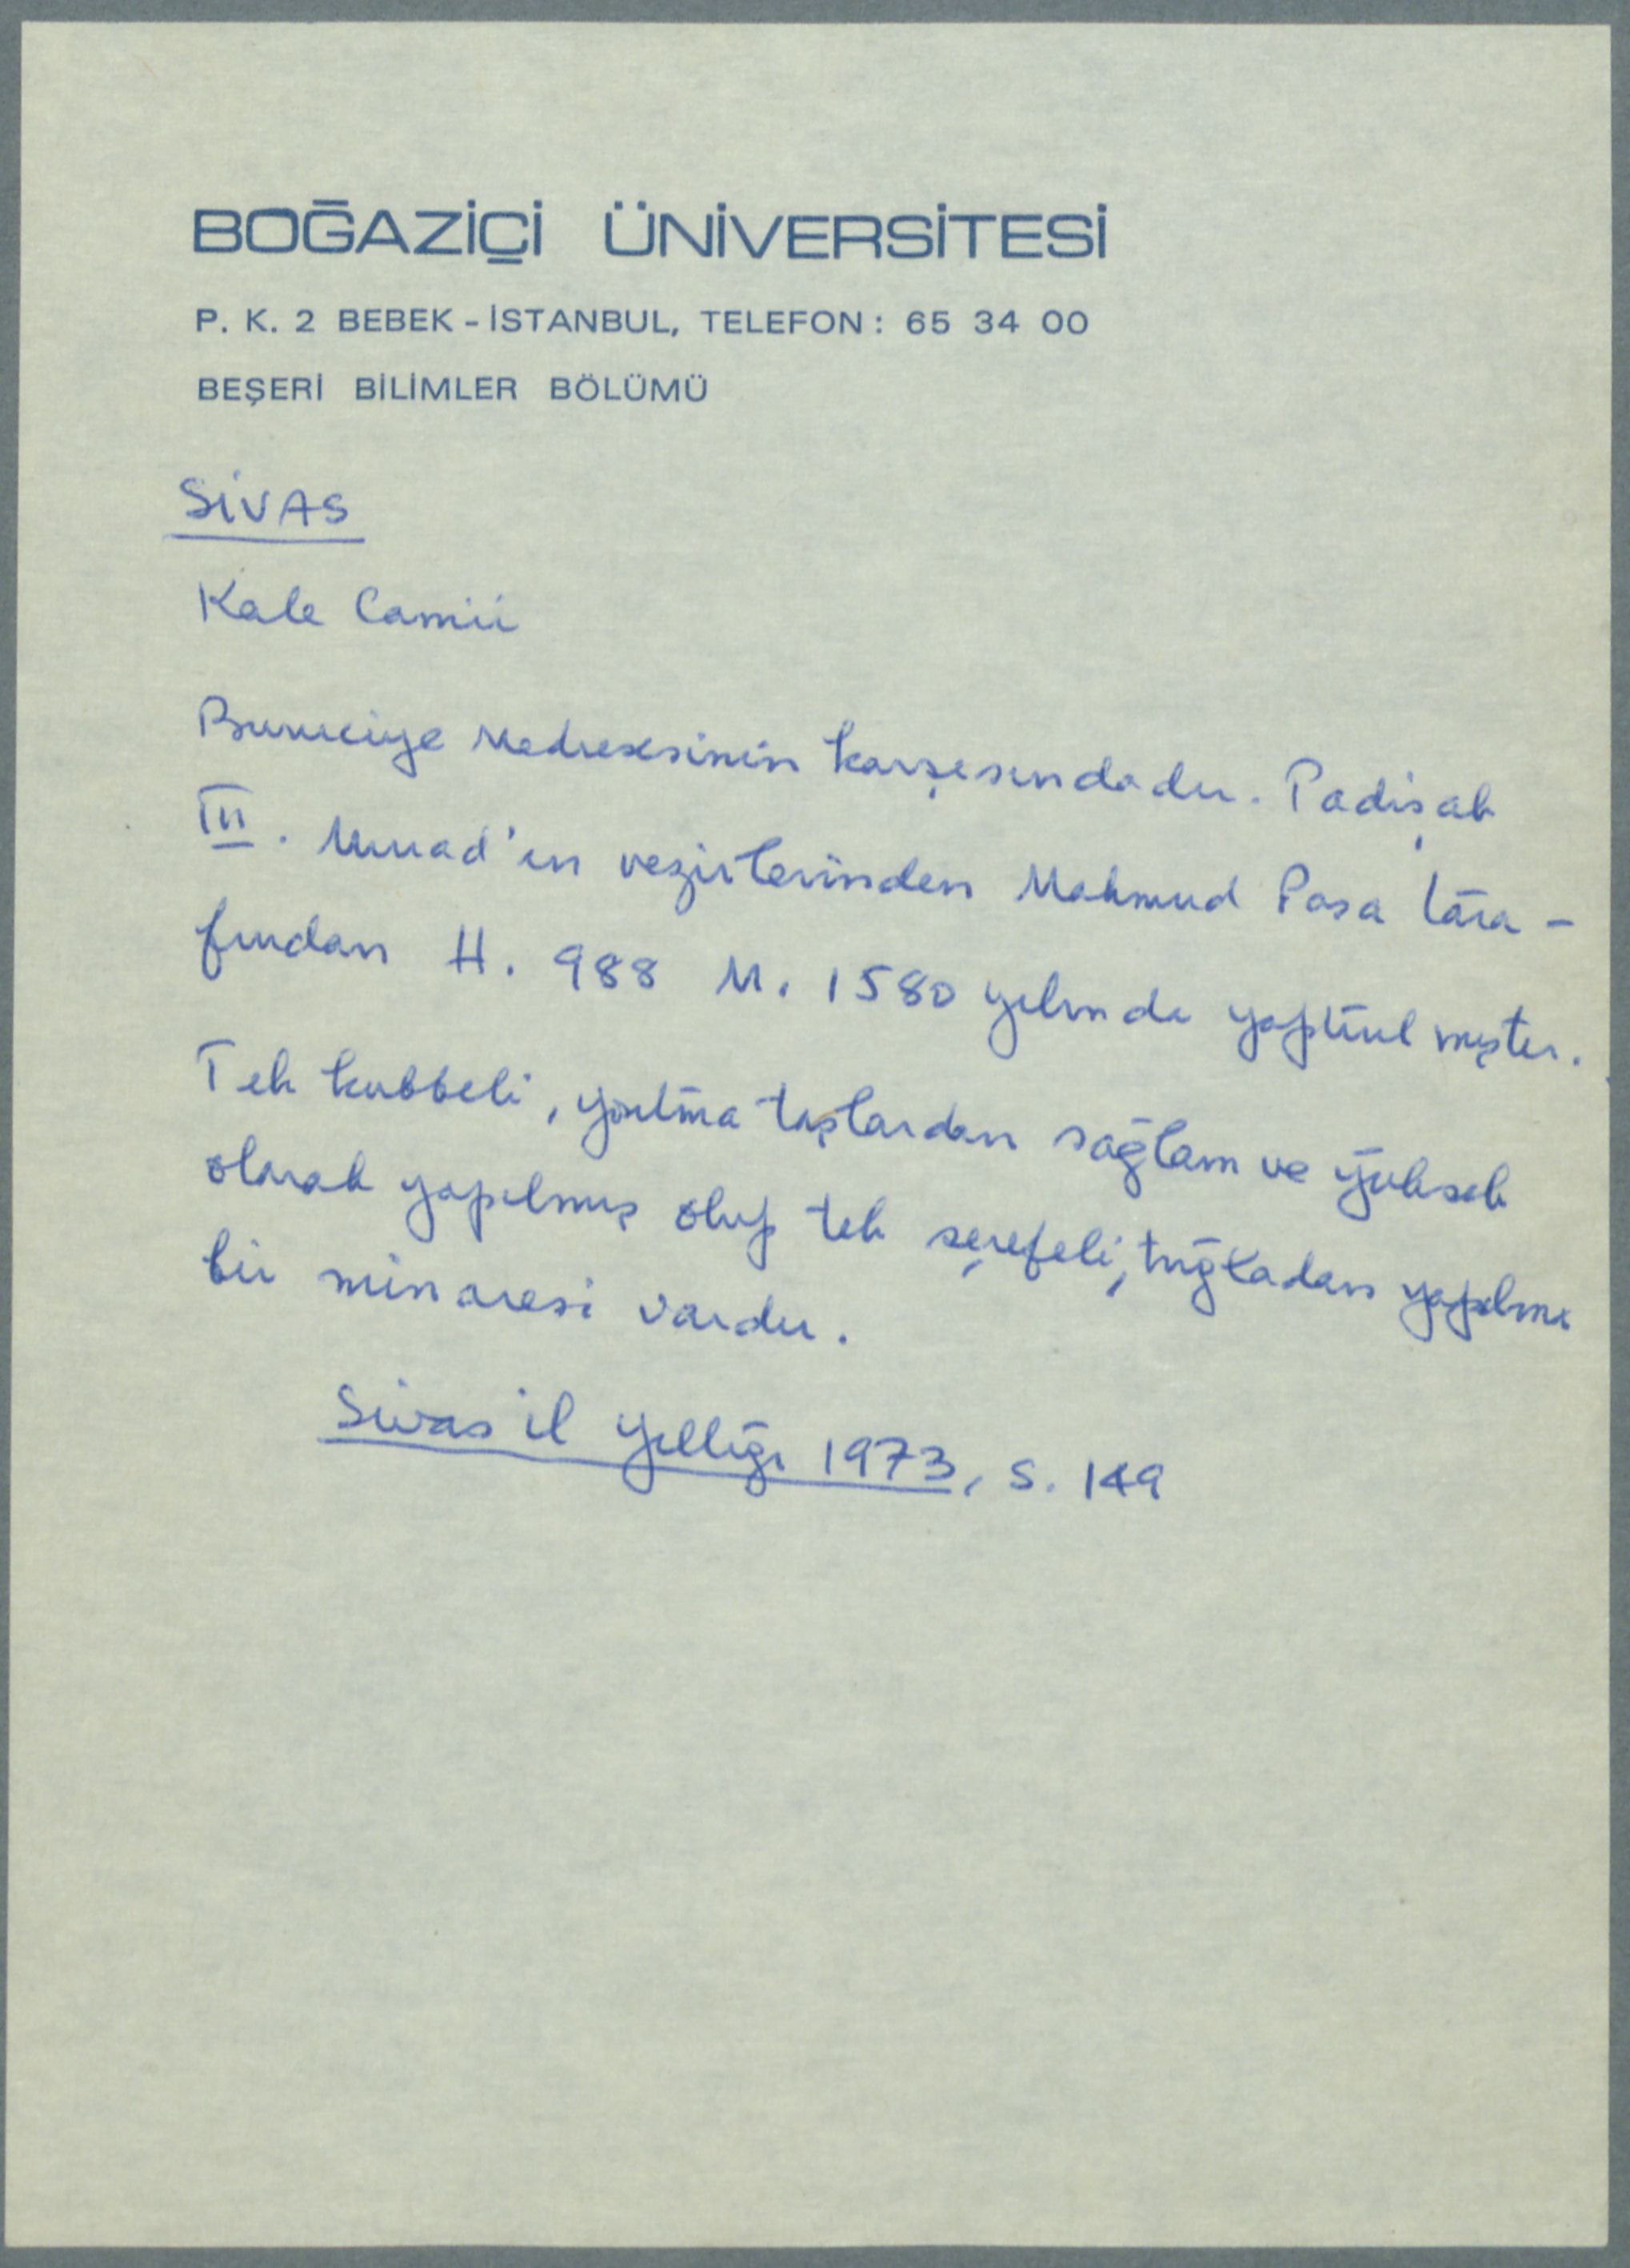 BOĞAZİÇİ ÜNİVERSİTESİ
P. K. 2 BEBEK - İSTANBUL, TELEFON : 65 34 00
BEŞERİ BİLİMLER BÖLÜMÜ
SİVAS
Kale Camii
Buruciye Medresesinin karşısındadır. Padişah
III. Murad'ın vezirlerinden Mahmud Paşa tara-
fından H. 988 M. 1580 yılında yaptırılmıştır.
Tek kubbeli, yontma taşlardan sağlam ve yüksek
olarak yapılmış olup tek şerefeli, tuğladan yapılma
bir minaresi vardır.
Sivas il yıllığı 1973, s. 149